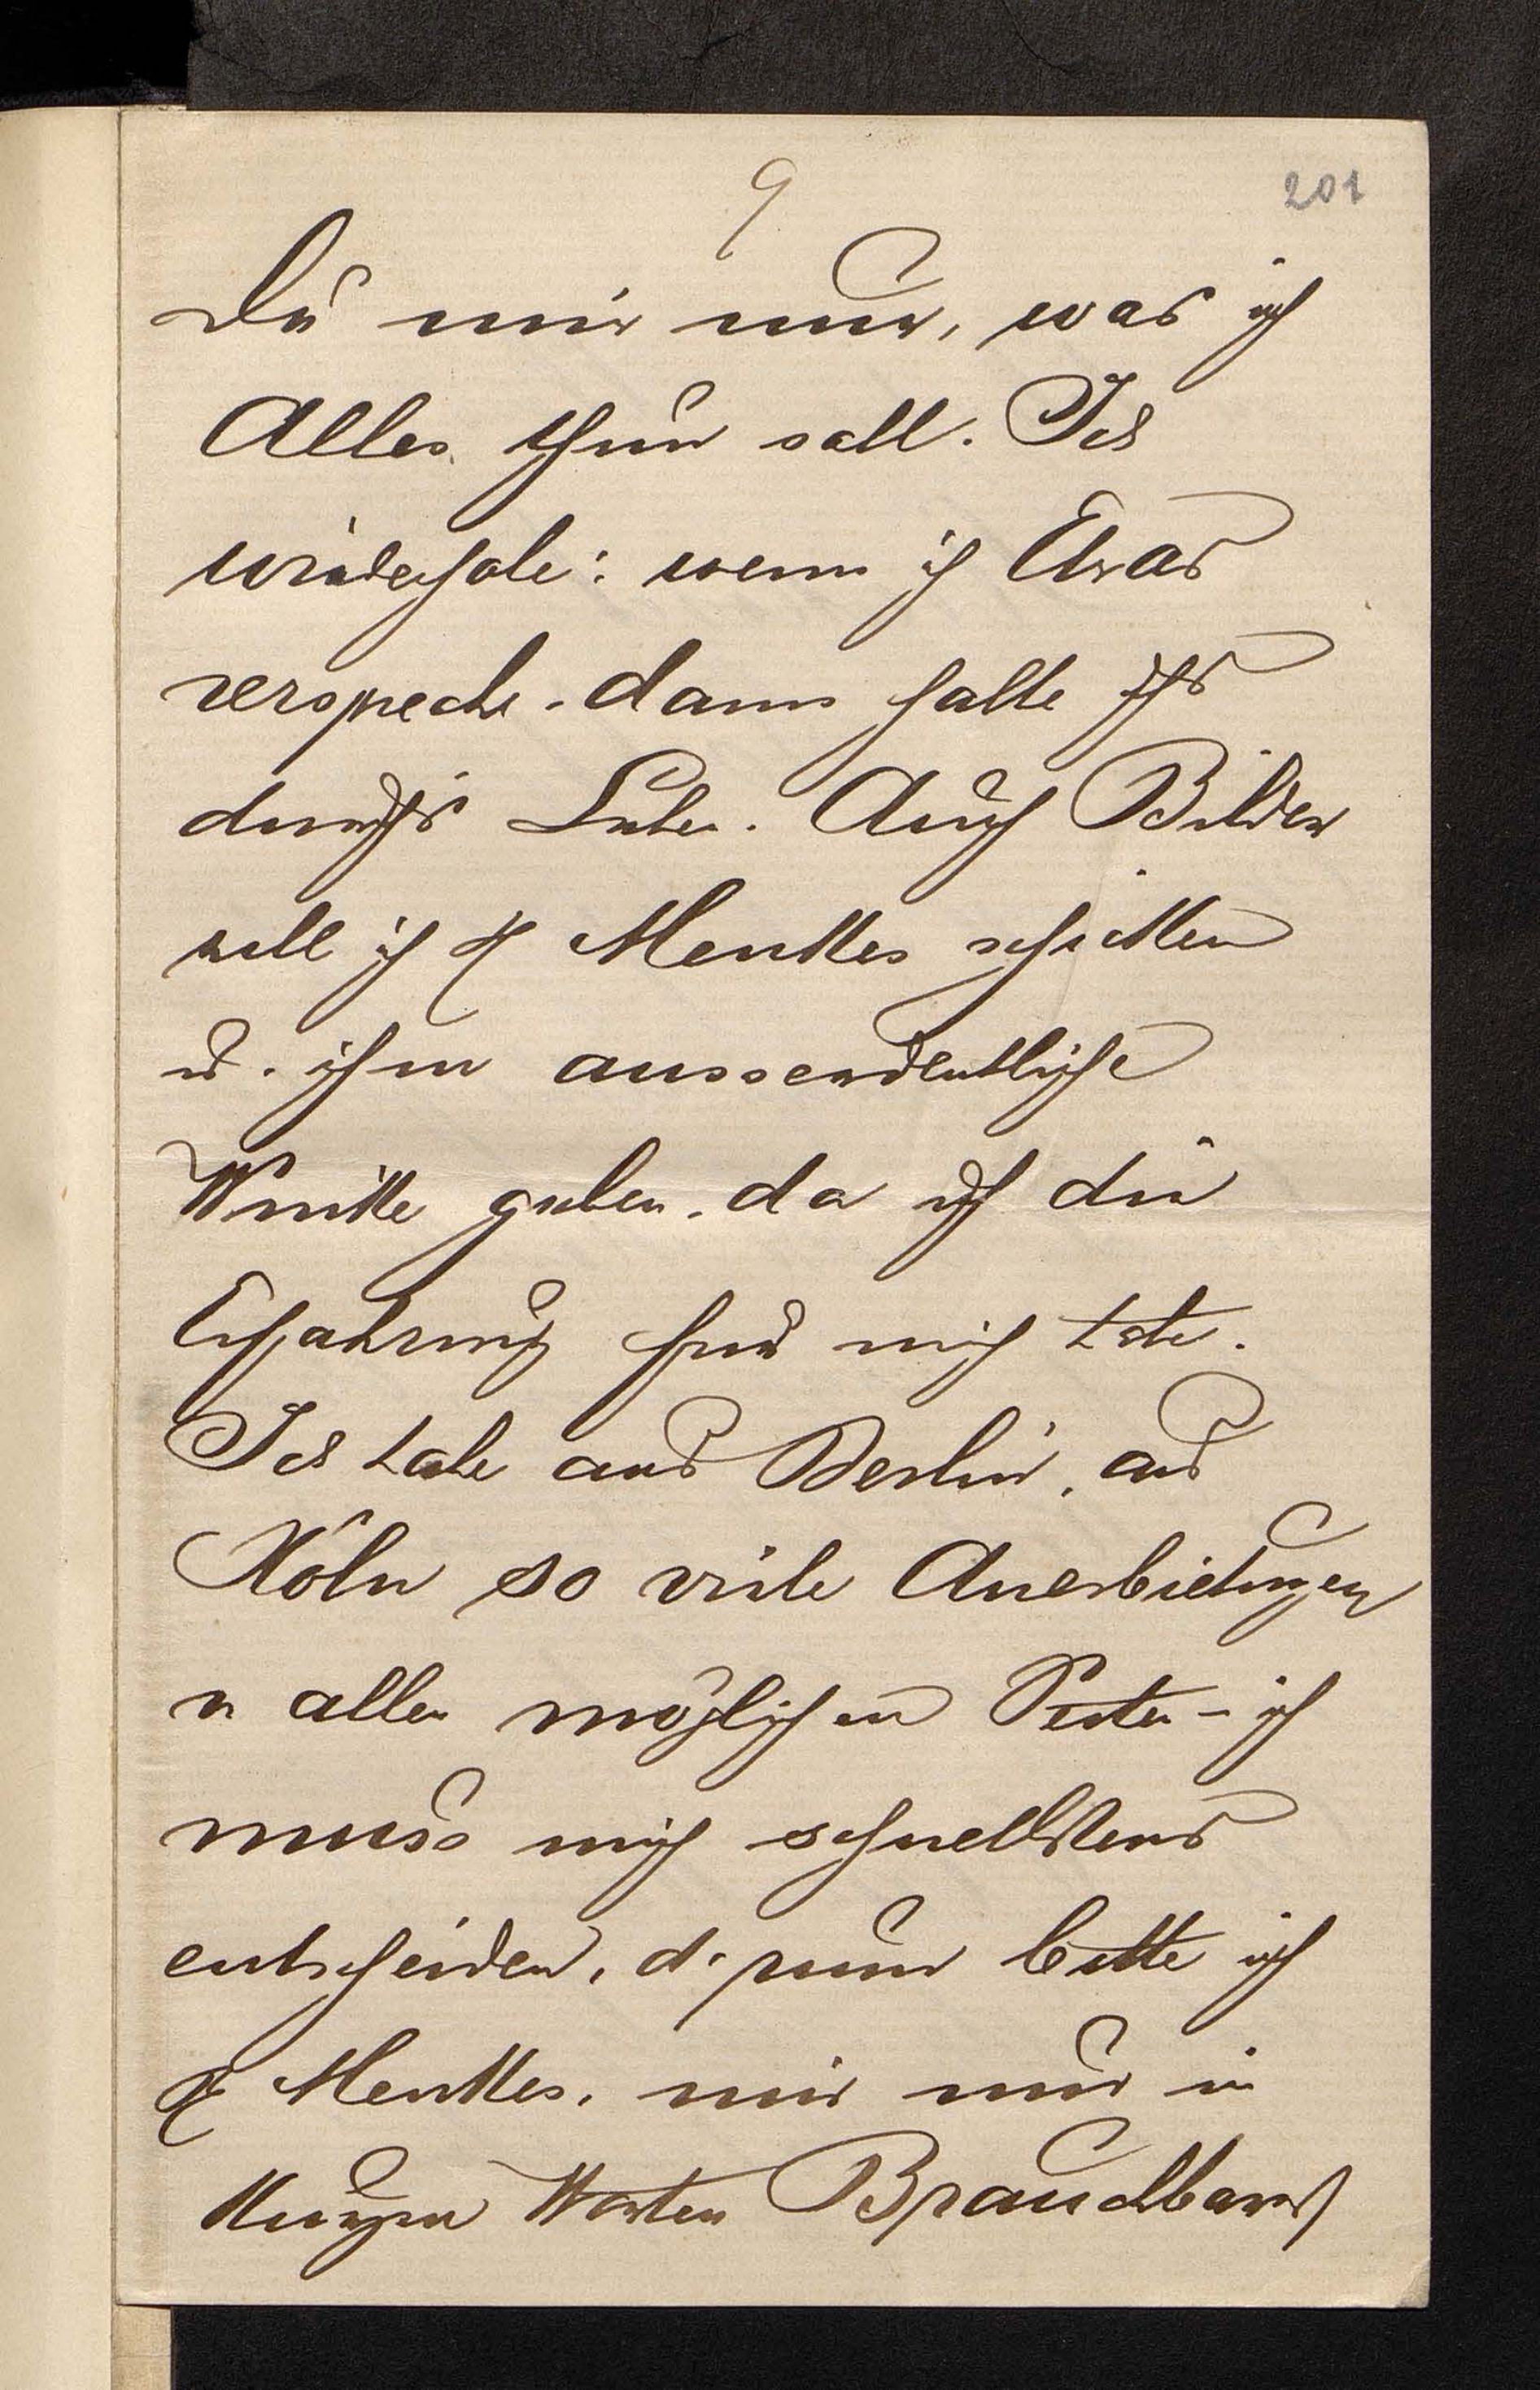 9
201
Du mir nur, was ich
Alles thun soll. Ich
wiederhole: wenn ich Etwas
verspreche, dann halte ichs
durchs Leben. Auch Bilder
will ich H Menkes schicken
u. ihm ausserordentliche
Winke geben, da ich die
Erfahrung für mich habe.
Ich habe aus Berlin, aus
Köln so viele Anerbietungen
v. allen möglichen Seiten – ich
muss mich schnellstens
entscheiden, drum bitte ich
H Menkes, mir nur in
kurzen Worten Brauchbares